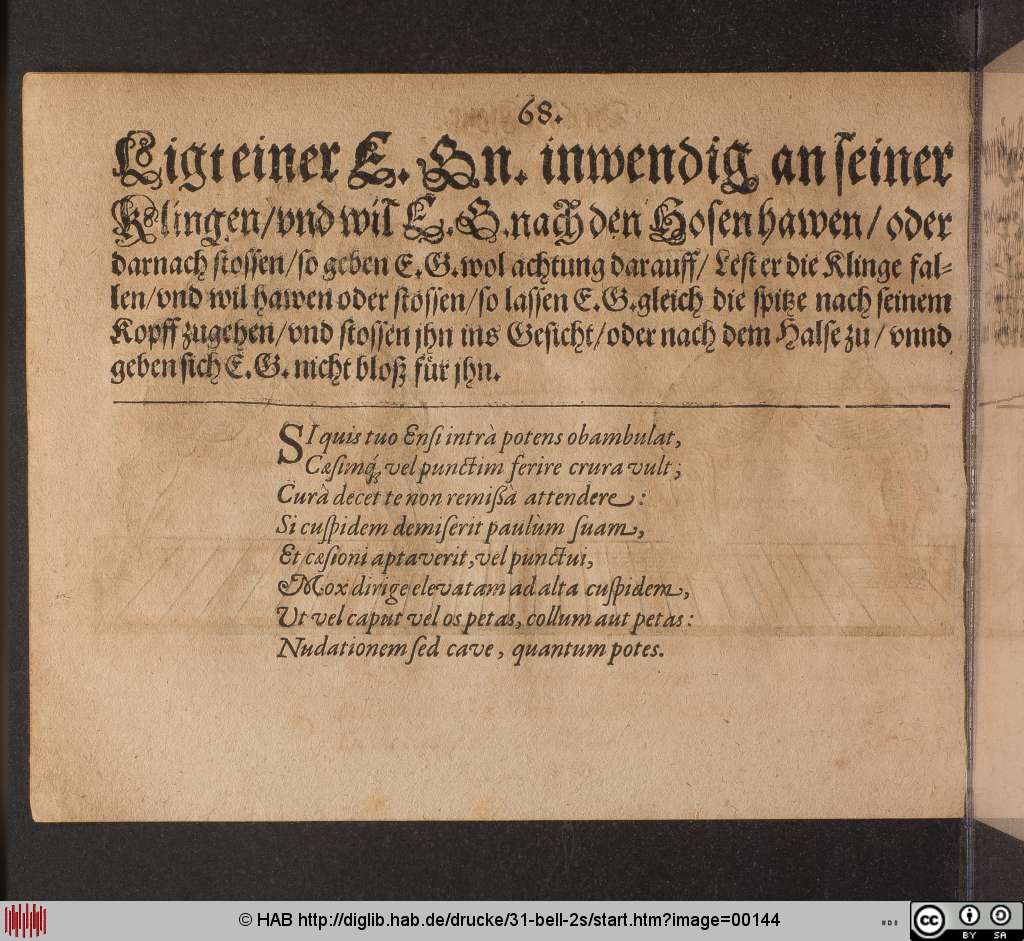 68.
Ligt einer E. Gn. inwendig an seiner
Klingen/vnd wil E. G. nach den Hosen hawen/ oder
darnach stossen/so geben E.G.wol achtung darauff/ Lest er die Klinge fal-
len/vnd wil hawen oder stossen/so lassen E.G.gleich die spitze nach seinem
Kopff zugehen/vnd stossen jhn ins Gesicht/oder nach dem Halse zu/ vnnd
geben sich E.G. nicht bloß für jhn.
SI quis tuo Ensi intrà potens obambulat,
Cæsimq́, vel punctim ferire crura vult;
Curâ decet te non remißâ attendere:
Si cuspidem demiserit paulùm suam,
Et cæsioni aptaverit, vel punctui,
Mox dirige elevatam ad alta cuspidem,
Ut vel caput vel os petas, collum aut petas:
Nudationem sed cave, quantum potes.
© HAB http://diglib.hab.de/drucke/31-bell-2s/start.htm?image=00144
cc BY SA